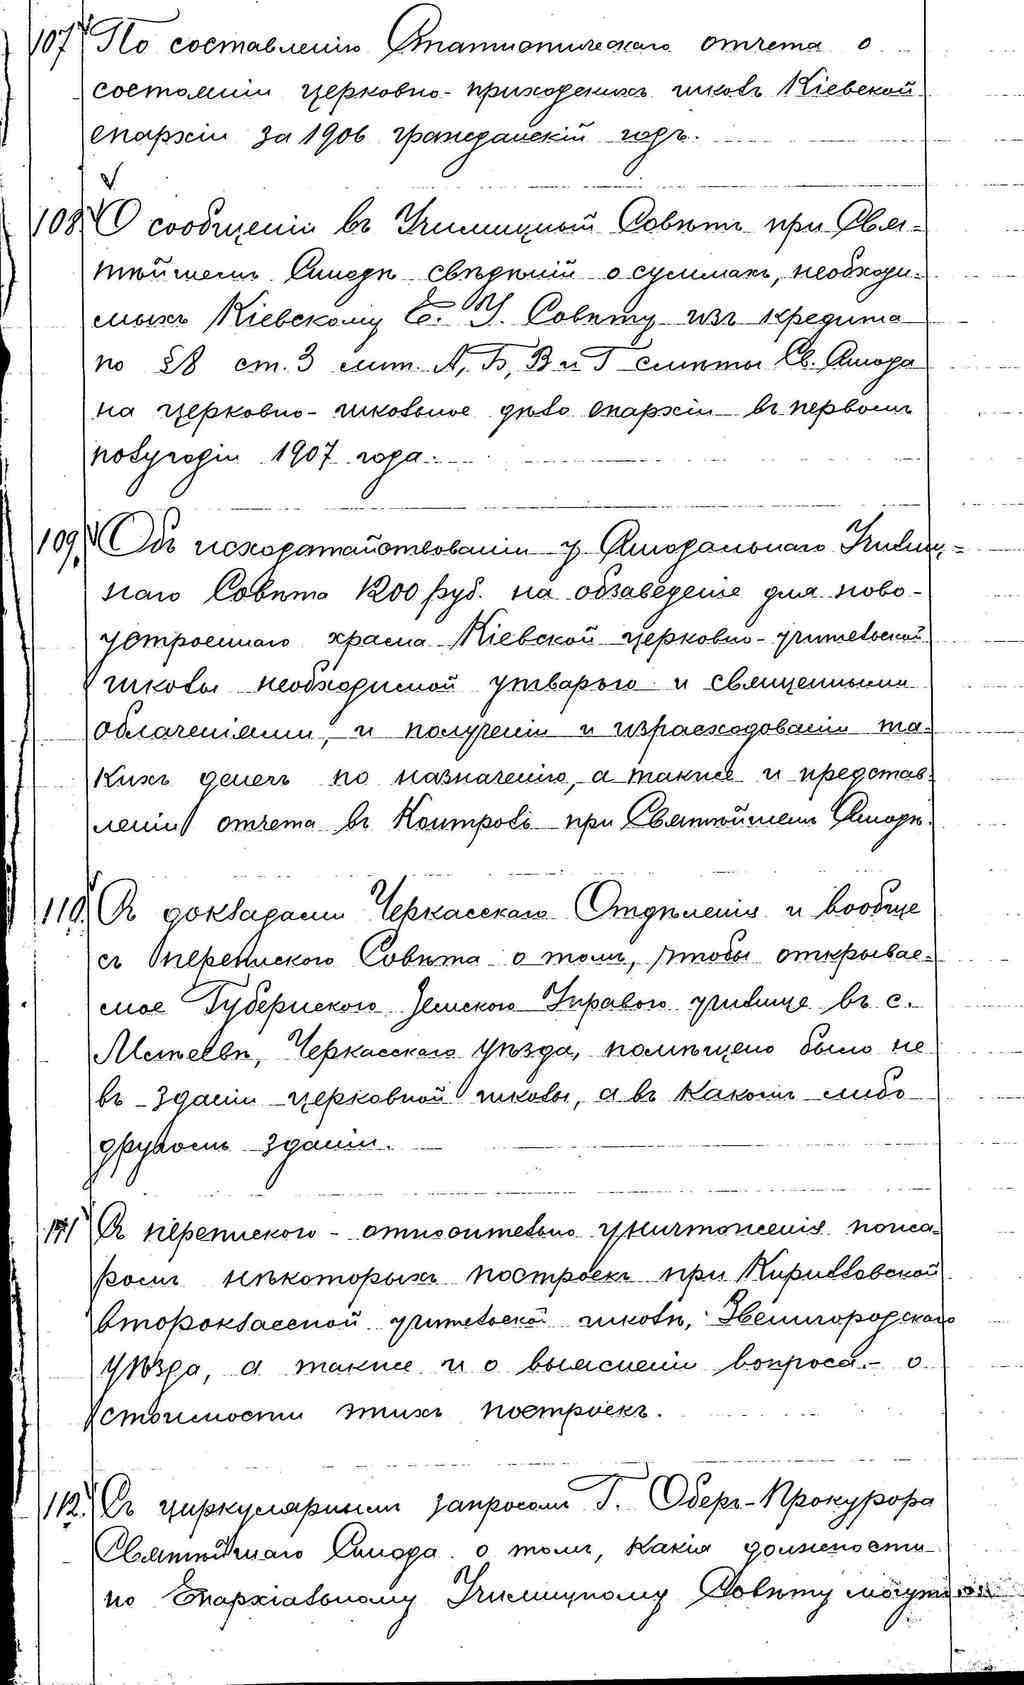 107 По составленію Статистическаго отчета о
состояніи церковно-приходскихъ школъ Кіевской
епархіи за 1906 гражданскій годъ.
108. О сообщеніи въ Училищный Совѣтъ при Свя-
тѣйшемъ Синодѣ свѣдѣній о суммахъ, необходи-
мыхъ Кіевскому Е. У. Совѣту изъ кредита
по §8 ст. 3 лит. А, Б, В и Г смѣты Св. Синода
на церковно-школьное дѣло епархіи въ первомъ
полугодіи 1907 года.
109. Объ исходатайствованіи у Синодальнаго Училищ-
наго Совѣта 1200 руб. на обзаведеніе для ново-
устроеннаго храма Кіевской церковно-учительской
школы необходимой утварью и священными
облаченіями, и полученіи и израсходованіи та-
кихъ денегъ по назначенію, а также и представ-
леніи отчета въ Контроль при Святѣйшемъ Синодѣ.
110. Съ докладами Черкасскаго Отдѣленія и вообще
съ перепискою Совѣта о томъ, чтобы открывае-
мое Губернскою Земскою Управою училище въ с.
Мстеевѣ, Черкасскаго уѣзда, помѣщено было не
въ зданіи церковной школы, а въ какомъ либо
другомъ зданіи.
111 Съ перепискою относительно уничтоженія пожа-
ромъ нѣкоторыхъ построекъ при Кирилловской
второклассной учительской школѣ, Звенигородскаго
уѣзда, а также и о выясненіи вопроса о
стоимости этихъ построекъ.
112. Съ циркулярнымъ запросомъ Г. Оберъ-Прокурора
Святѣйшаго Синода о томъ, какія должности
по Епархіальному Училищному Совѣту могутъ